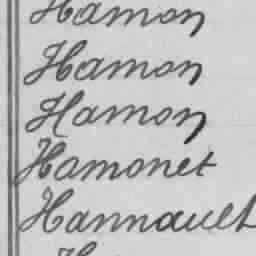 Hamon
Hamon
Hamon
Hamonet
Hannault